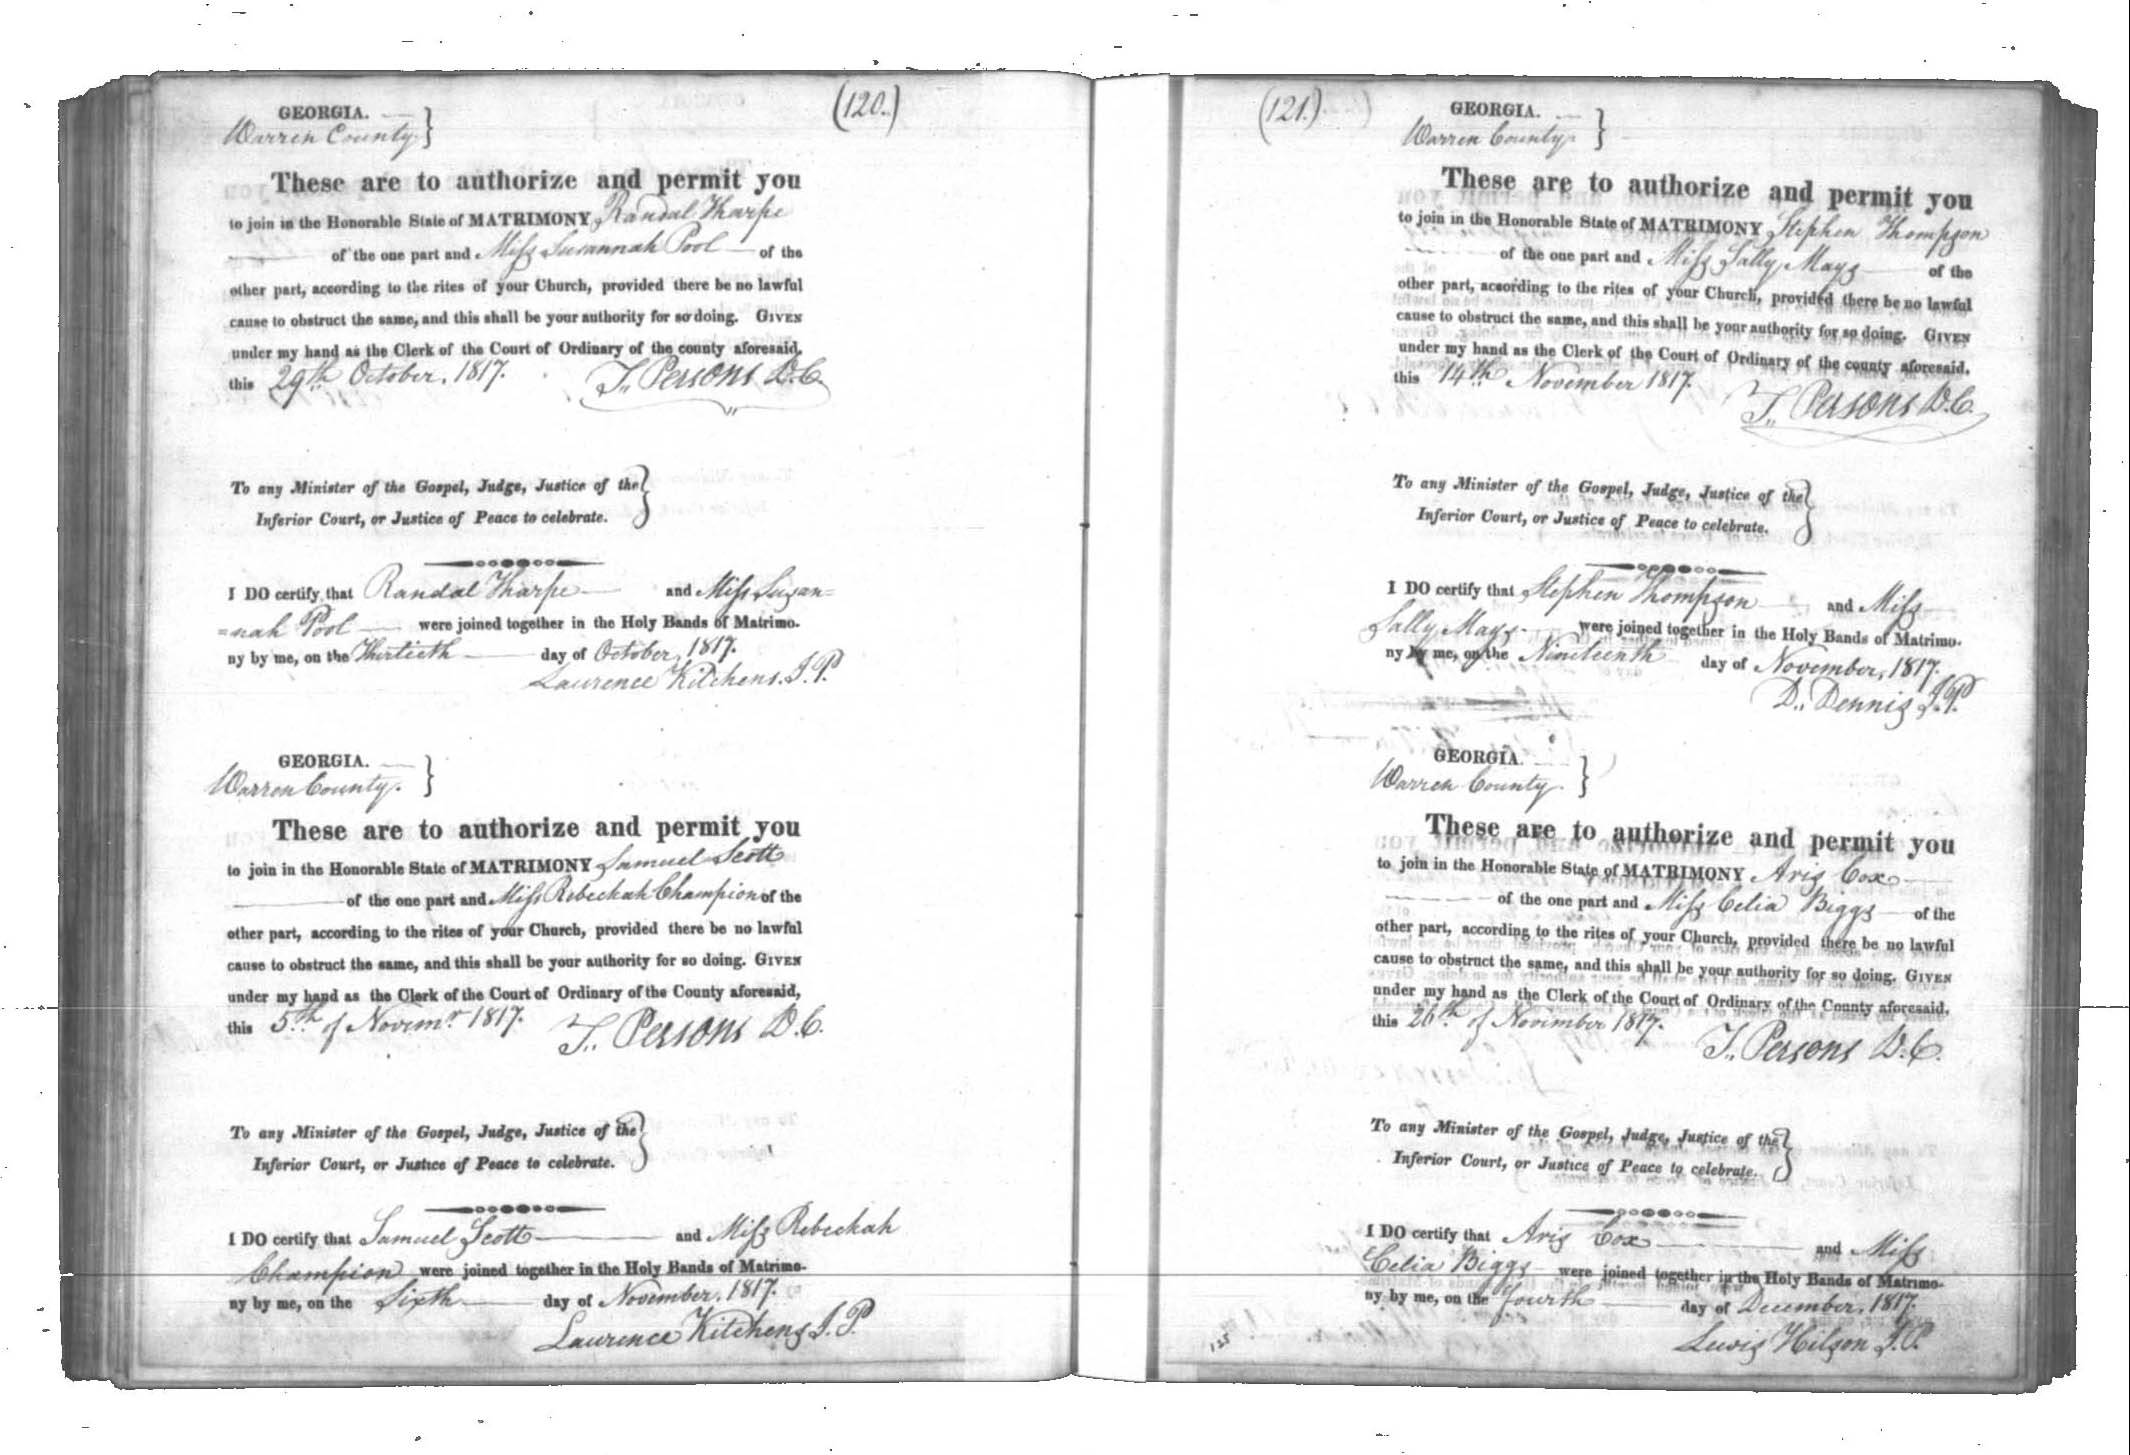 (120.)
GEORGIA.
Warren County. }
These are to authorize and permit you
to join in the Honorable State of MATRIMONY, Randal Tharpe
of the one part and Miss Susannah Pool of the
other part, according to the rites of your Church, provided there be no lawful
cause to obstruct the same, and this shall be your authority for so doing. GIVEN
under my hand as the Clerk of the Court of Ordinary of the county aforesaid,
this 29th October, 1817. T,, Persons D.C.
To any Minister of the Gospel, Judge, Justice of the }
Inferior Court, or Justice of Peace to celebrate.
I DO certify that Randal Tharpe and Miss Susan=
=nah Pool were joined together in the Holy Bands of Matrimo-
ny by me, on the Thirtieth day of October, 1817.
Laurence Kitchens. J.P.
GEORGIA.
Warren County. }
These are to authorize and permit you
to join in the Honorable State of MATRIMONY Samuel Scott
of the one part and Miss Rebeckah Champion of the
other part, according to the rites of your Church, provided there be no lawful
cause to obstruct the same, and this shall be your authority for so doing. GIVEN
under my hand as the Clerk of the Court of Ordinary of the County aforesaid,
this 5th of Novemr 1817. T,, Persons D.C.
To any Minister of the Gospel, Judge, Justice of the }
Inferior Court, or Justice of Peace to celebrate.
I DO certify that Samuel Scott and Miss Rebeckah
Champion were joined together in the Holy Bands of Matrimo-
ny by me, on the Sixth day of November, 1817.
Laurence Kitchens J.P.
(121.)
GEORGIA.
Warren County. }
These are to authorize and permit you
to join in the Honorable State of MATRIMONY Stephen Thompson
of the one part and Miss Sally Mays of the
other part, according to the rites of your Church, provided there be no lawful
cause to obstruct the same, and this shall be your authority for so doing. GIVEN
under my hand as the Clerk of the Court of Ordinary of the county aforesaid,
this 14th November 1817. T,, Persons D.C.
To any Minister of the Gospel, Judge, Justice of the }
Inferior Court, or Justice of Peace to celebrate.
I DO certify that Stephen Thompson and Miss
Sally Mays were joined together in the Holy Bands of Matrimo-
ny by me, on the Nineteenth day of November, 1817.
D,, Dennis J.P.
GEORGIA.
Warren County. }
These are to authorize and permit you
to join in the Honorable State of MATRIMONY Aris Cox
of the one part and Miss Celia Biggs of the
other part, according to the rites of your Church, provided there be no lawful
cause to obstruct the same, and this shall be your authority for so doing. GIVEN
under my hand as the Clerk of the Court of Ordinary of the County aforesaid,
this 26th of November 1817. T,, Persons D.C.
To any Minister of the Gospel, Judge, Justice of the }
Inferior Court, or Justice of Peace to celebrate.
I DO certify that Aris Cox and Miss
Celia Biggs were joined together in the Holy Bands of Matrimo-
ny by me, on the fourth day of December, 1817.
Lewis Hilson J.P.
125